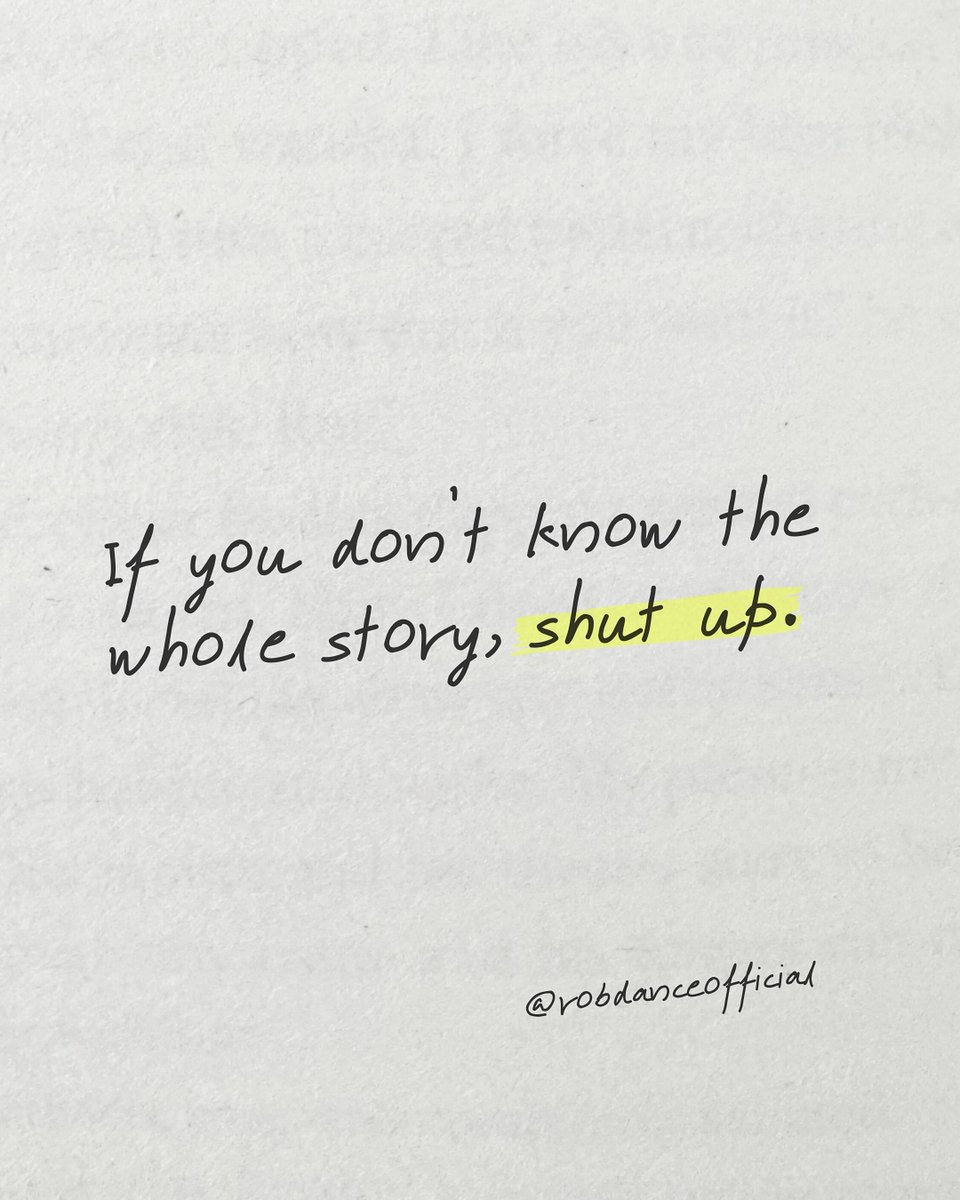 If you don't know the
whole story, shut up.
@robdanceofficial